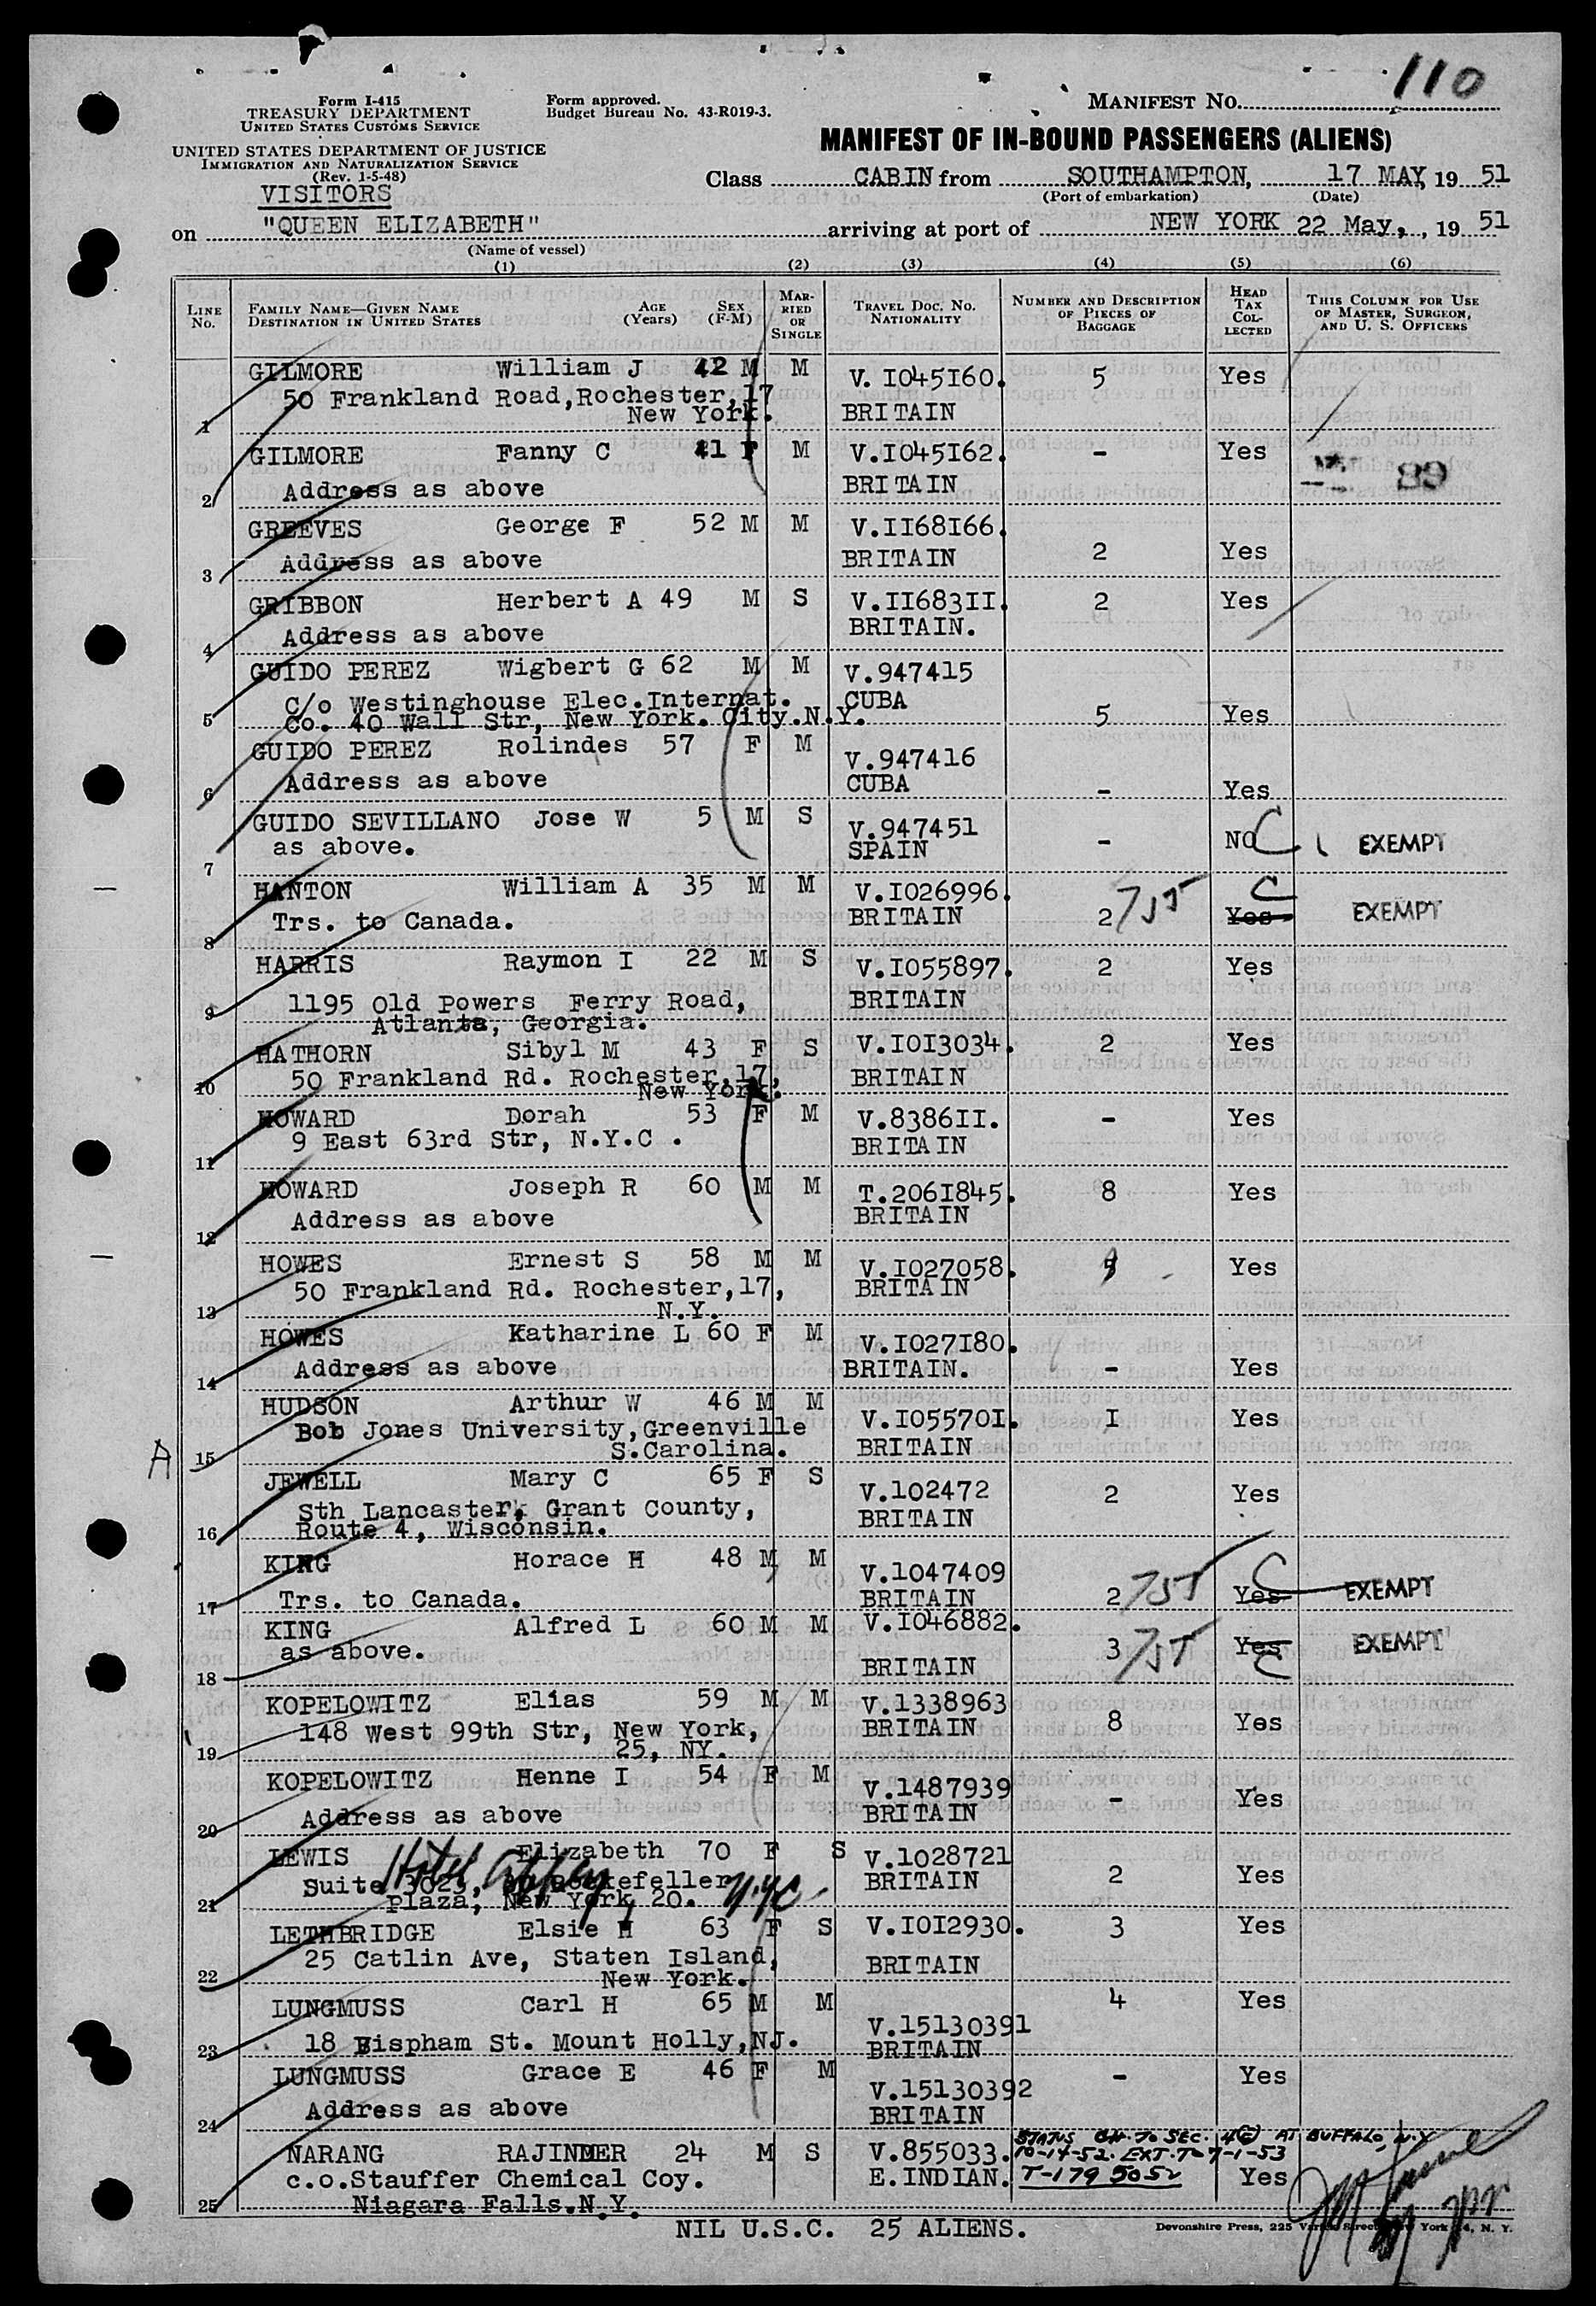 110
Form I-415
TREASURY DEPARTMENT
UNITED STATES CUSTOMS SERVICE
UNITED STATES DEPARTMENT OF JUSTICE
IMMIGRATION AND NATURALIZATION SERVICE
(Rev. 1-5-48)
Form approved.
Budget Bureau No. 43-R019-3.
MANIFEST NO.
MANIFEST OF IN-BOUND PASSENGERS (ALIENS)
VISITORS
Class CABIN from SOUTHAMPTON, 17 MAY, 19 51
(Port of embarkation) (Date)
on "QUEEN ELIZABETH" arriving at port of NEW YORK 22 May, 19 51
(Name of vessel)
(1) (2) (3) (4) (5) (6)
LINE NO. FAMILY NAME—GIVEN NAME DESTINATION IN UNITED STATES AGE (Years) SEX (F-M) MARRIED OR SINGLE TRAVEL DOC. NO. NATIONALITY NUMBER AND DESCRIPTION OF PIECES OF BAGGAGE HEAD TAX COLLECTED THIS COLUMN FOR USE OF MASTER, SURGEON, AND U. S. OFFICERS
GILMORE William J 42 M M V. I045I60. 5 Yes
50 Frankland Road,Rochester,17
1 New York. BRITAIN
GILMORE Fanny C 41 F M V.I045I62. - Yes
2 Address as above BRITAIN 89
GREEVES George F 52 M M V.II68I66.
3 Address as above BRITAIN 2 Yes
GRIBBON Herbert A 49 M S V.II683II. 2 Yes
4 Address as above BRITAIN.
GUIDO PEREZ Wigbert G 62 M M V.947415
C/o Westinghouse Elec.Internat. CUBA
5 Co. 40 Wall Str, New York. City.N.Y. 5 Yes
GUIDO PEREZ Rolindes 57 F M V.947416
6 Address as above CUBA - Yes
GUIDO SEVILLANO Jose W 5 M S V.947451
7 as above. SPAIN - NO C EXEMPT
HANTON William A 35 M M V.I026996. C
8 Trs. to Canada. BRITAIN 2 Yes EXEMPT
HARRIS Raymon I 22 M S V.I055897. 2 Yes
9 1195 Old Powers Ferry Road, BRITAIN
Atlanta, Georgia.
HATHORN Sibyl M 43 F S V.I0I3034. 2 Yes
50 Frankland Rd. Rochester,17, BRITAIN
10 New York.
HOWARD Dorah 53 F M V.8386II. - Yes
11 9 East 63rd Str, N.Y.C . BRITAIN
HOWARD Joseph R 60 M M T.206I845. 8 Yes
12 Address as above BRITAIN
HOWES Ernest S 58 M M V.I027058. Yes
50 Frankland Rd. Rochester,17, BRITAIN
13 N.Y.
HOWES Katharine L 60 F M V.I027I80.
14 Address as above BRITAIN. - Yes
HUDSON Arthur W 46 M M V.I05570I. I Yes
Bob Jones University,Greenville
A 15 S.Carolina. BRITAIN
JEWELL Mary C 65 F S V.102472 2 Yes
Sth Lancaster, Grant County, BRITAIN
16 Route 4, Wisconsin.
KING Horace H 48 M M V.1047409 C
17 Trs. to Canada. BRITAIN 2 Yes EXEMPT
KING Alfred L 60 M M V.I046882.
as above. 3 Yes EXEMPT
18 BRITAIN C
KOPELOWITZ Elias 59 M M V.1338963
148 West 99th Str, New York, BRITAIN 8 Yes
19 25, NY.
KOPELOWITZ Henne I 54 F M V.1487939 - Yes
20 Address as above BRITAIN
LEWIS Elizabeth 70 F S V.1028721
Hotel NYC
Suite 3025, Rockefeller BRITAIN 2 Yes
21 Plaza, New York, 20.
LETHBRIDGE Elsie H 63 F S V.I0I2930. 3 Yes
25 Catlin Ave, Staten Island, BRITAIN
22 New York.
LUNGMUSS Carl H 65 M M 4 Yes
V.15130391
23 18 Bispham St. Mount Holly,NJ. BRITAIN
LUNGMUSS Grace E 46 F M V.15130392 - Yes
24 Address as above BRITAIN
STATUS CH. TO SEC. 4(E) AT BUFFALO, N.Y.
NARANG RAJINDER 24 M S V.855033. 10-14-52. EXT. TO 7-1-53
c.o.Stauffer Chemical Coy. E.INDIAN. T-1795052 Yes
25 Niagara Falls.N.Y.
NIL U.S.C. 25 ALIENS.
Devonshire Press, 225 Varick Street, New York 14, N. Y.